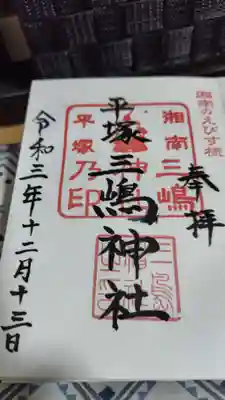 湘南のえびす様
奉拝
湘南三嶋
平塚三嶋神社
平塚乃印
令和三年十二月十三日